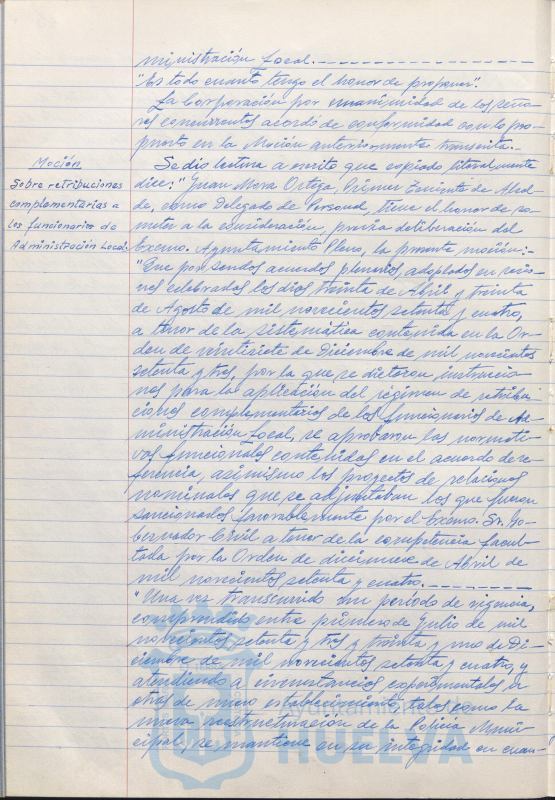 ministración Local.-
"Es todo cuanto tengo el honor de proponer".
La Corporación por unanimidad de los seño-
res concurrentes acordó de conformidad con lo pro-
puesto en la Moción anteriormente transcrita.-
Moción
Sobre retribuciones
complementarias a
los funcionarios de
Administración Local.
Se dio lectura a escrito que copiado literalmente
dice: "Juan Mora Ortega, Primer Teniente de Alcal-
de, como Delegado de Personal, tiene el honor de so-
meter a la consideración, previa deliberación del
Excmo. Ayuntamiento Pleno, la presente moción:-
"Que por sendos acuerdos plenarios adoptados en sesio-
nes celebradas los días treinta de Abril y treinta
de Agosto de mil novecientos setenta y cuatro,
a tenor de la sistemática contenida en la Or-
den de veintisiete de Diciembre de mil novecientos
setenta y tres, por la que se dictaron instruccio-
nes para la aplicación del régimen de retribu-
ciones complementarias de los funcionarios de Ad-
ministración Local, se aprobaron las normati-
vas funcionales contenidas en el acuerdo de re-
ferencia, asimismo los proyectos de relaciones
nominales que se adjuntaban los que fueron
sancionados favorablemente por el Excmo. Sr. Go-
bernador Civil a tenor de la competencia facul-
tada por la Orden de de Abril de
mil novecientos setenta y cuatro.-
"Una vez transcurrido un período de vigencia,
comprendido entre primero de Julio de mil
novecientos setenta y tres y treinta y uno de Di-
ciembre de mil novecientos setenta y cuatro, y
atendiendo a circunstancias experimentales u
otras de nuevo establecimiento, tales como la
nueva reestructuración de la Policía Muni-
cipal, se mantiene en su integridad en cuan-
HUELVA